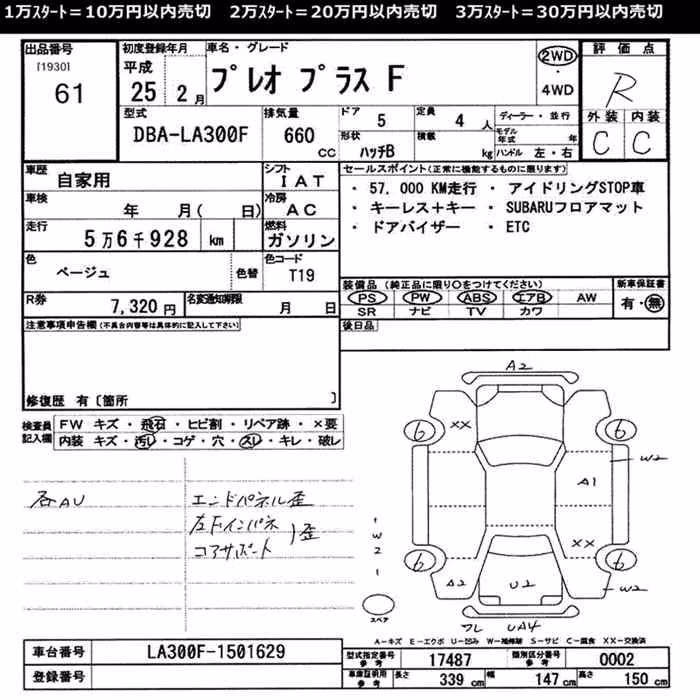 1万スタート＝10万円以内売切　2万スタート＝20万円以内売切　3万スタート＝30万円以内売切
出品番号
[1930]
61
初度登録年月
平成
25 2月
車名・グレード
プレオ プラス F
2WD
・
4WD
評価点
R
外装 内装
C C
型式
DBA-LA300F
排気量
660
cc
ドア
5
定員
4 人
ディーラー・並行
形状
ハッチB
積載
kg
モデル年式 年
ハンドル 左・右
車歴
自家用
シフト
IAT
車検
年 月( 日)
冷房
AC
走行
5万6千928 km
燃料
ガソリン
色
ベージュ
色替
色コード
T19
R券
7,320円
名変通知期限
月 日
セールスポイント(正常に機能するものに限ります)
・57.000KM走行 ・アイドリングSTOP車
・キーレス＋キー ・SUBARUフロアマット
・ドアバイザー ・ETC
装備品(純正品に限り○をつけてください)
PS PW ABS エアB AW
SR ナビ TV カワ
新車保証書
有・無
後日品
注意事項申告欄(不具合内容等は具体的に記入して下さい)
修復歴 有〔箇所 〕
検査員記入欄
FW キズ・飛石・ヒビ割・リペア跡・×要
内装 キズ・汚レ・コゲ・穴・スレ・キレ・破レ
各AU
エンドパネル歪
左Fインパネ
コアサポート
歪
A2
6
XX
6
W2
A1
1
W
2
1
XX
6
6
A2
U2
W2
スペア
フレ UA4
A－キズ E－エクボ U－凹み W－補修跡 S－サビ C－腐食 XX－交換済
車台番号
LA300F-1501629
登録番号
型式指定番号
参考
17487
類別区分番号
参考
0002
車庫証明用
参考
長さ 339 cm
幅 147 cm
高さ 150 cm